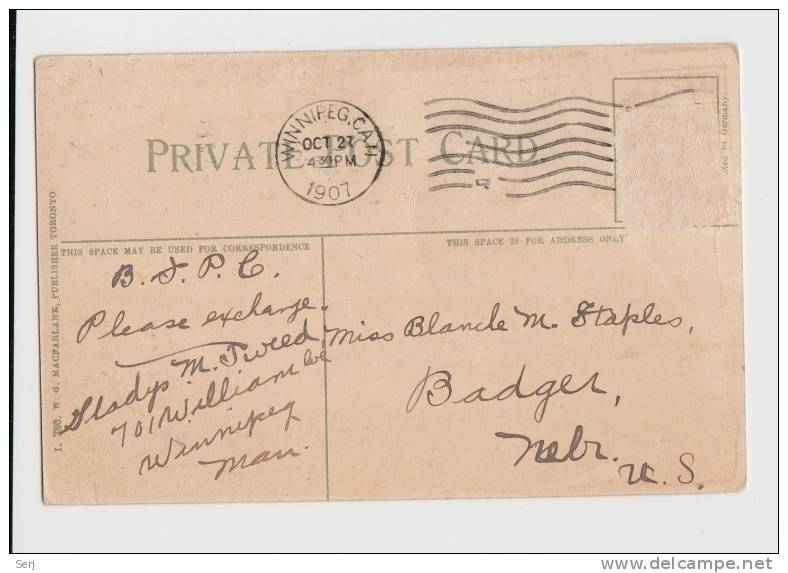 PRIVATE POST CARD
WINNIPEG, CAN
OCT 27
4 30 PM
1907
ted in Germany.
THIS SPACE MAY BE USED FOR CORRESPONDENCE
THIS SPACE IS FOR ADDRESS ONLY
I. 780. W. G. MACFARLANE, PUBLISHER TORONTO
B. J. P. C.
Please exchange.
Gladys M. Tweed
701 William Ave
Winnipeg
Man.
Miss Blanche M. Staples,
Badger,
Nebr.
U. S.
Serj
delcampe.net